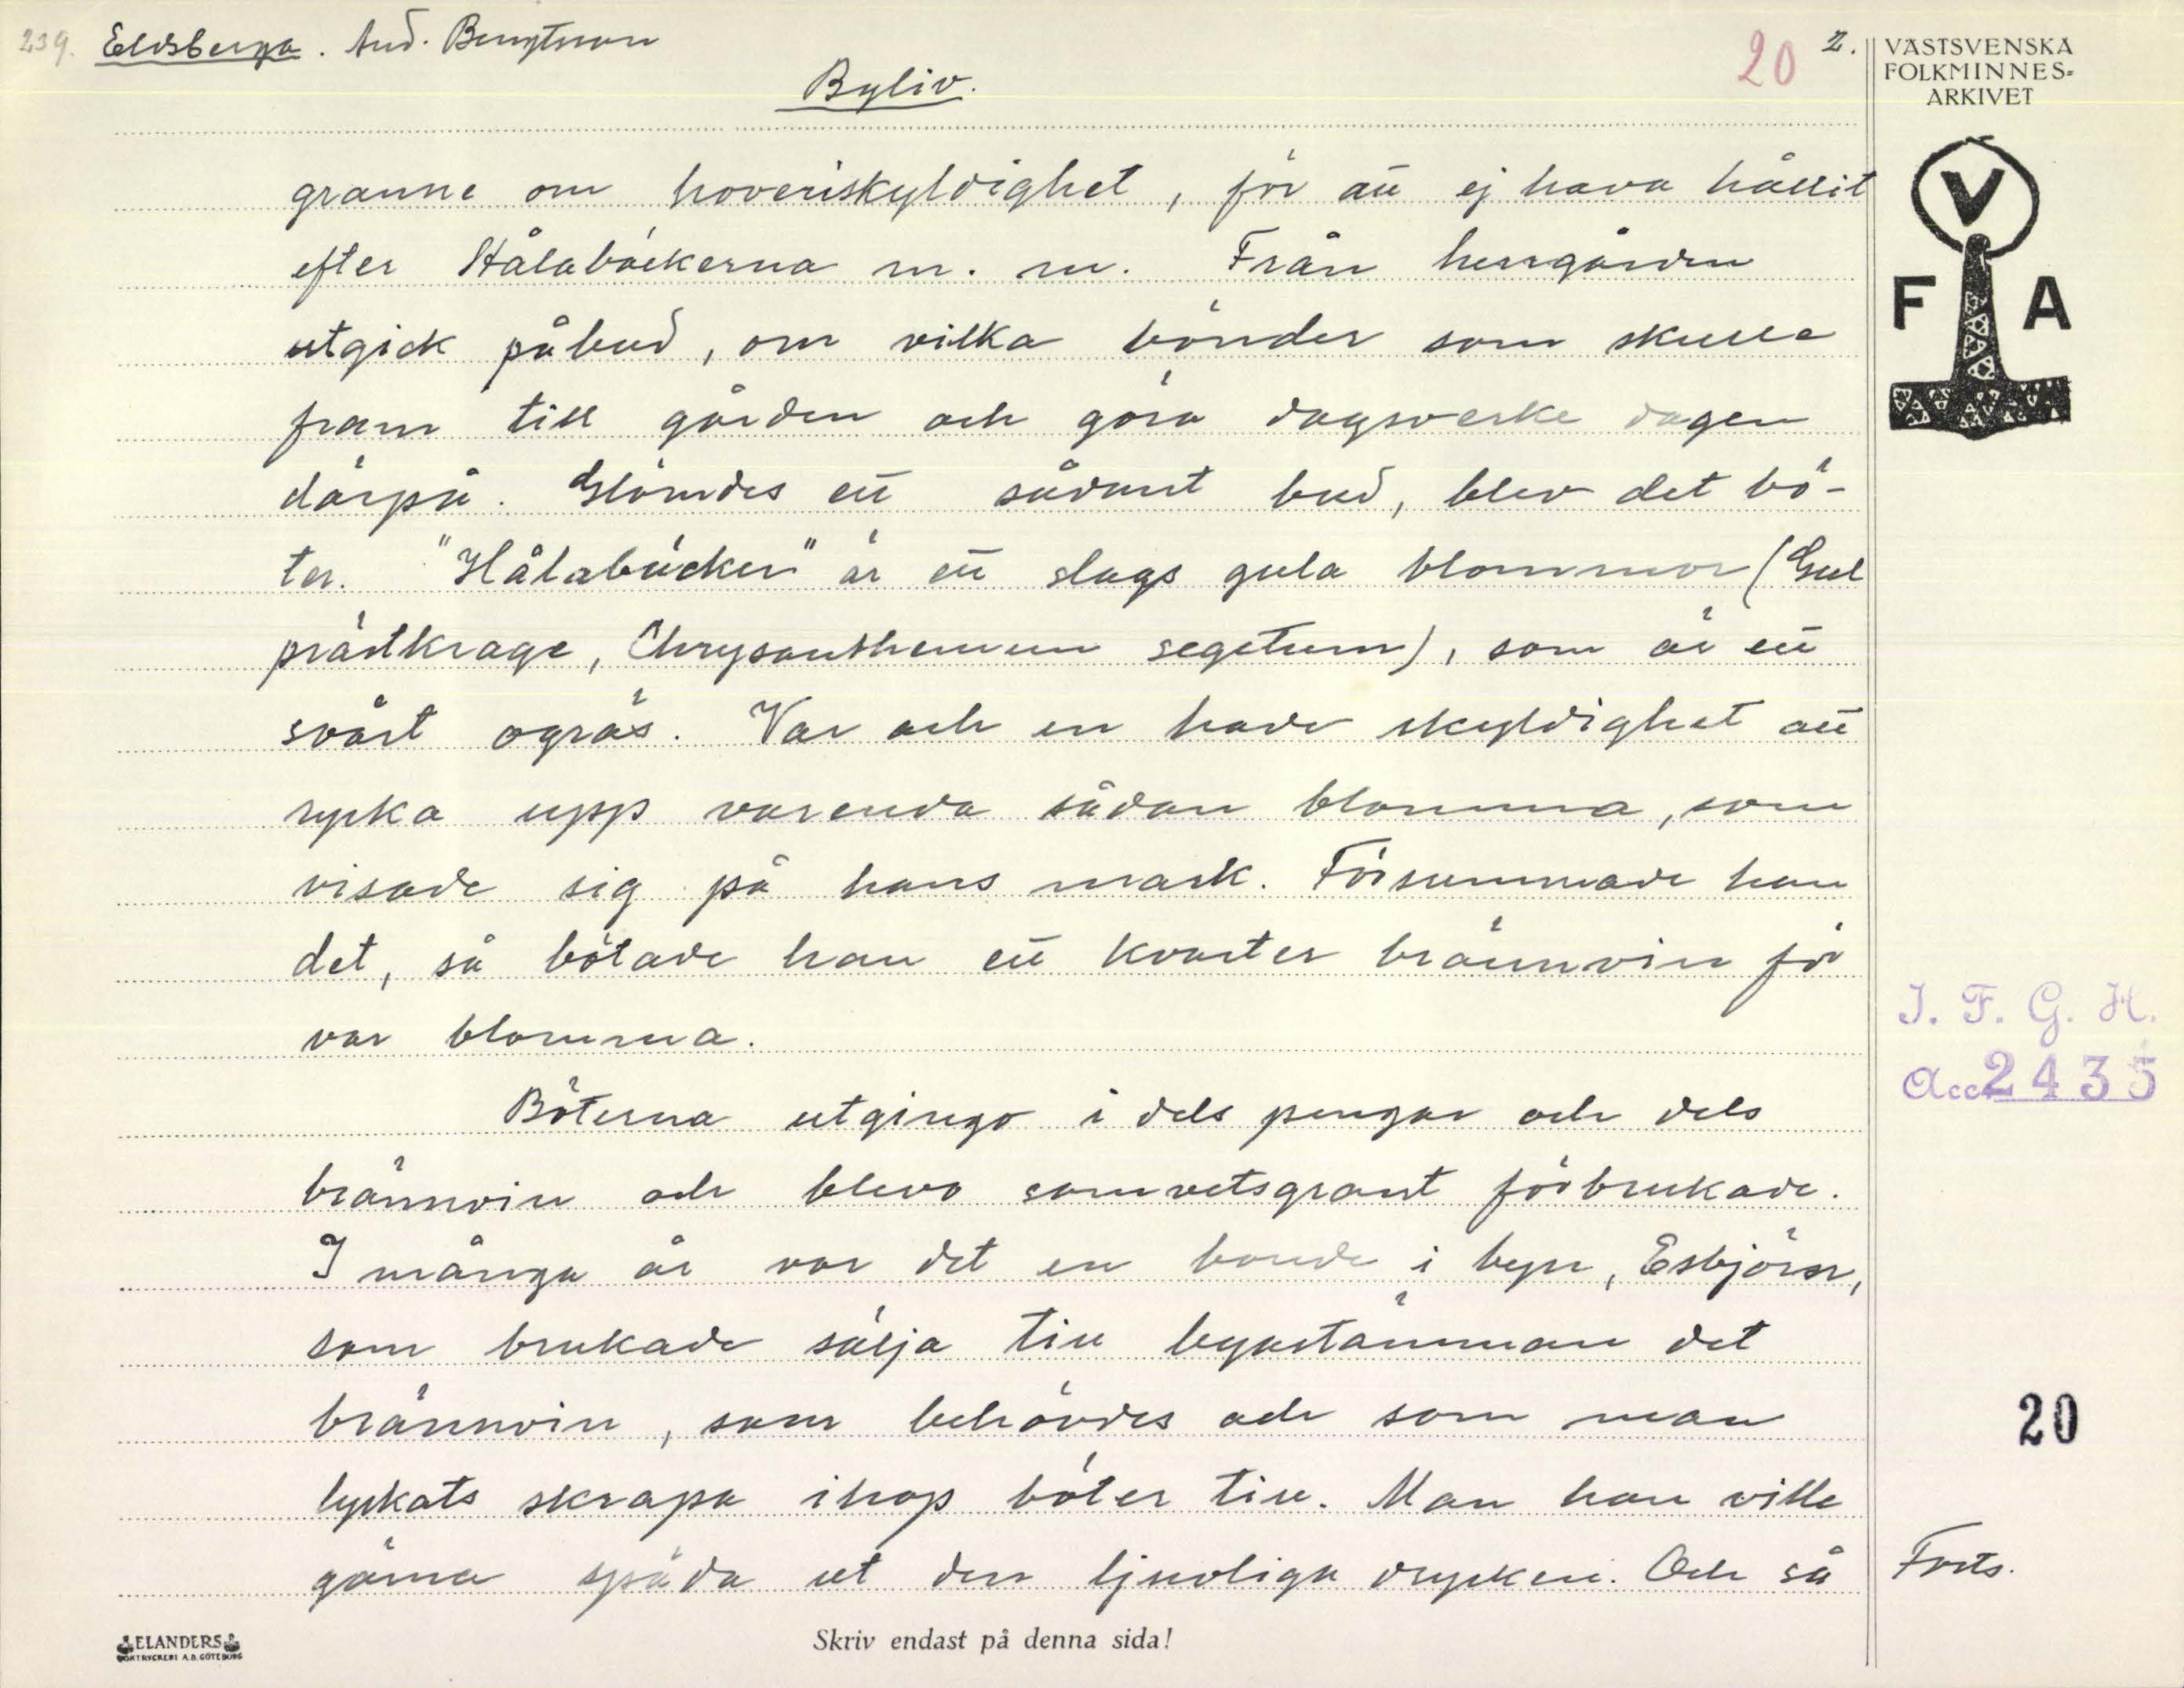 239. Eldsberga. And. Bengtsson
20 2.
Byliv.
VÄSTSVENSKA
FOLKMINNES-
ARKIVET
V
F A
granne om hoveriskyldighet, för att ej hava hållit
efter Hålabäckerna m. m. Från herrgården
utgick påbud, om vilka bönder som skulle
fram till gården och göra dagsverke dagen
därpå. Glömdes ett sådant bud, blev det bö-
ter. "Hålabäcker" är ett slags gula blommor (Gul
prästkrage, Chrysanthemum segetum), som är ett
svårt ogräs. Var och en hade skyldighet att
rycka upp varenda sådan blomma, som
visade sig på hans mark. Försummade han
det, så bötade han ett kvarter brännvin för
var blomma.
Böterna utgingo i dels pengar och dels
brännvin och blevo samvetsgrant förbrukade.
I många år var det en bonde i byn, Esbjörn,
som brukade sälja till byastämman det
brännvin, som behövdes och som man
lyckats skrapa ihop böter till. Man han ville
gärna späda ut den ljuvliga drycken. Och så
I. F. G. H.
Acc 2435
20
Forts.
ELANDERS
BOKTRYCKERI A.B. GÖTEBORG
Skriv endast på denna sida!